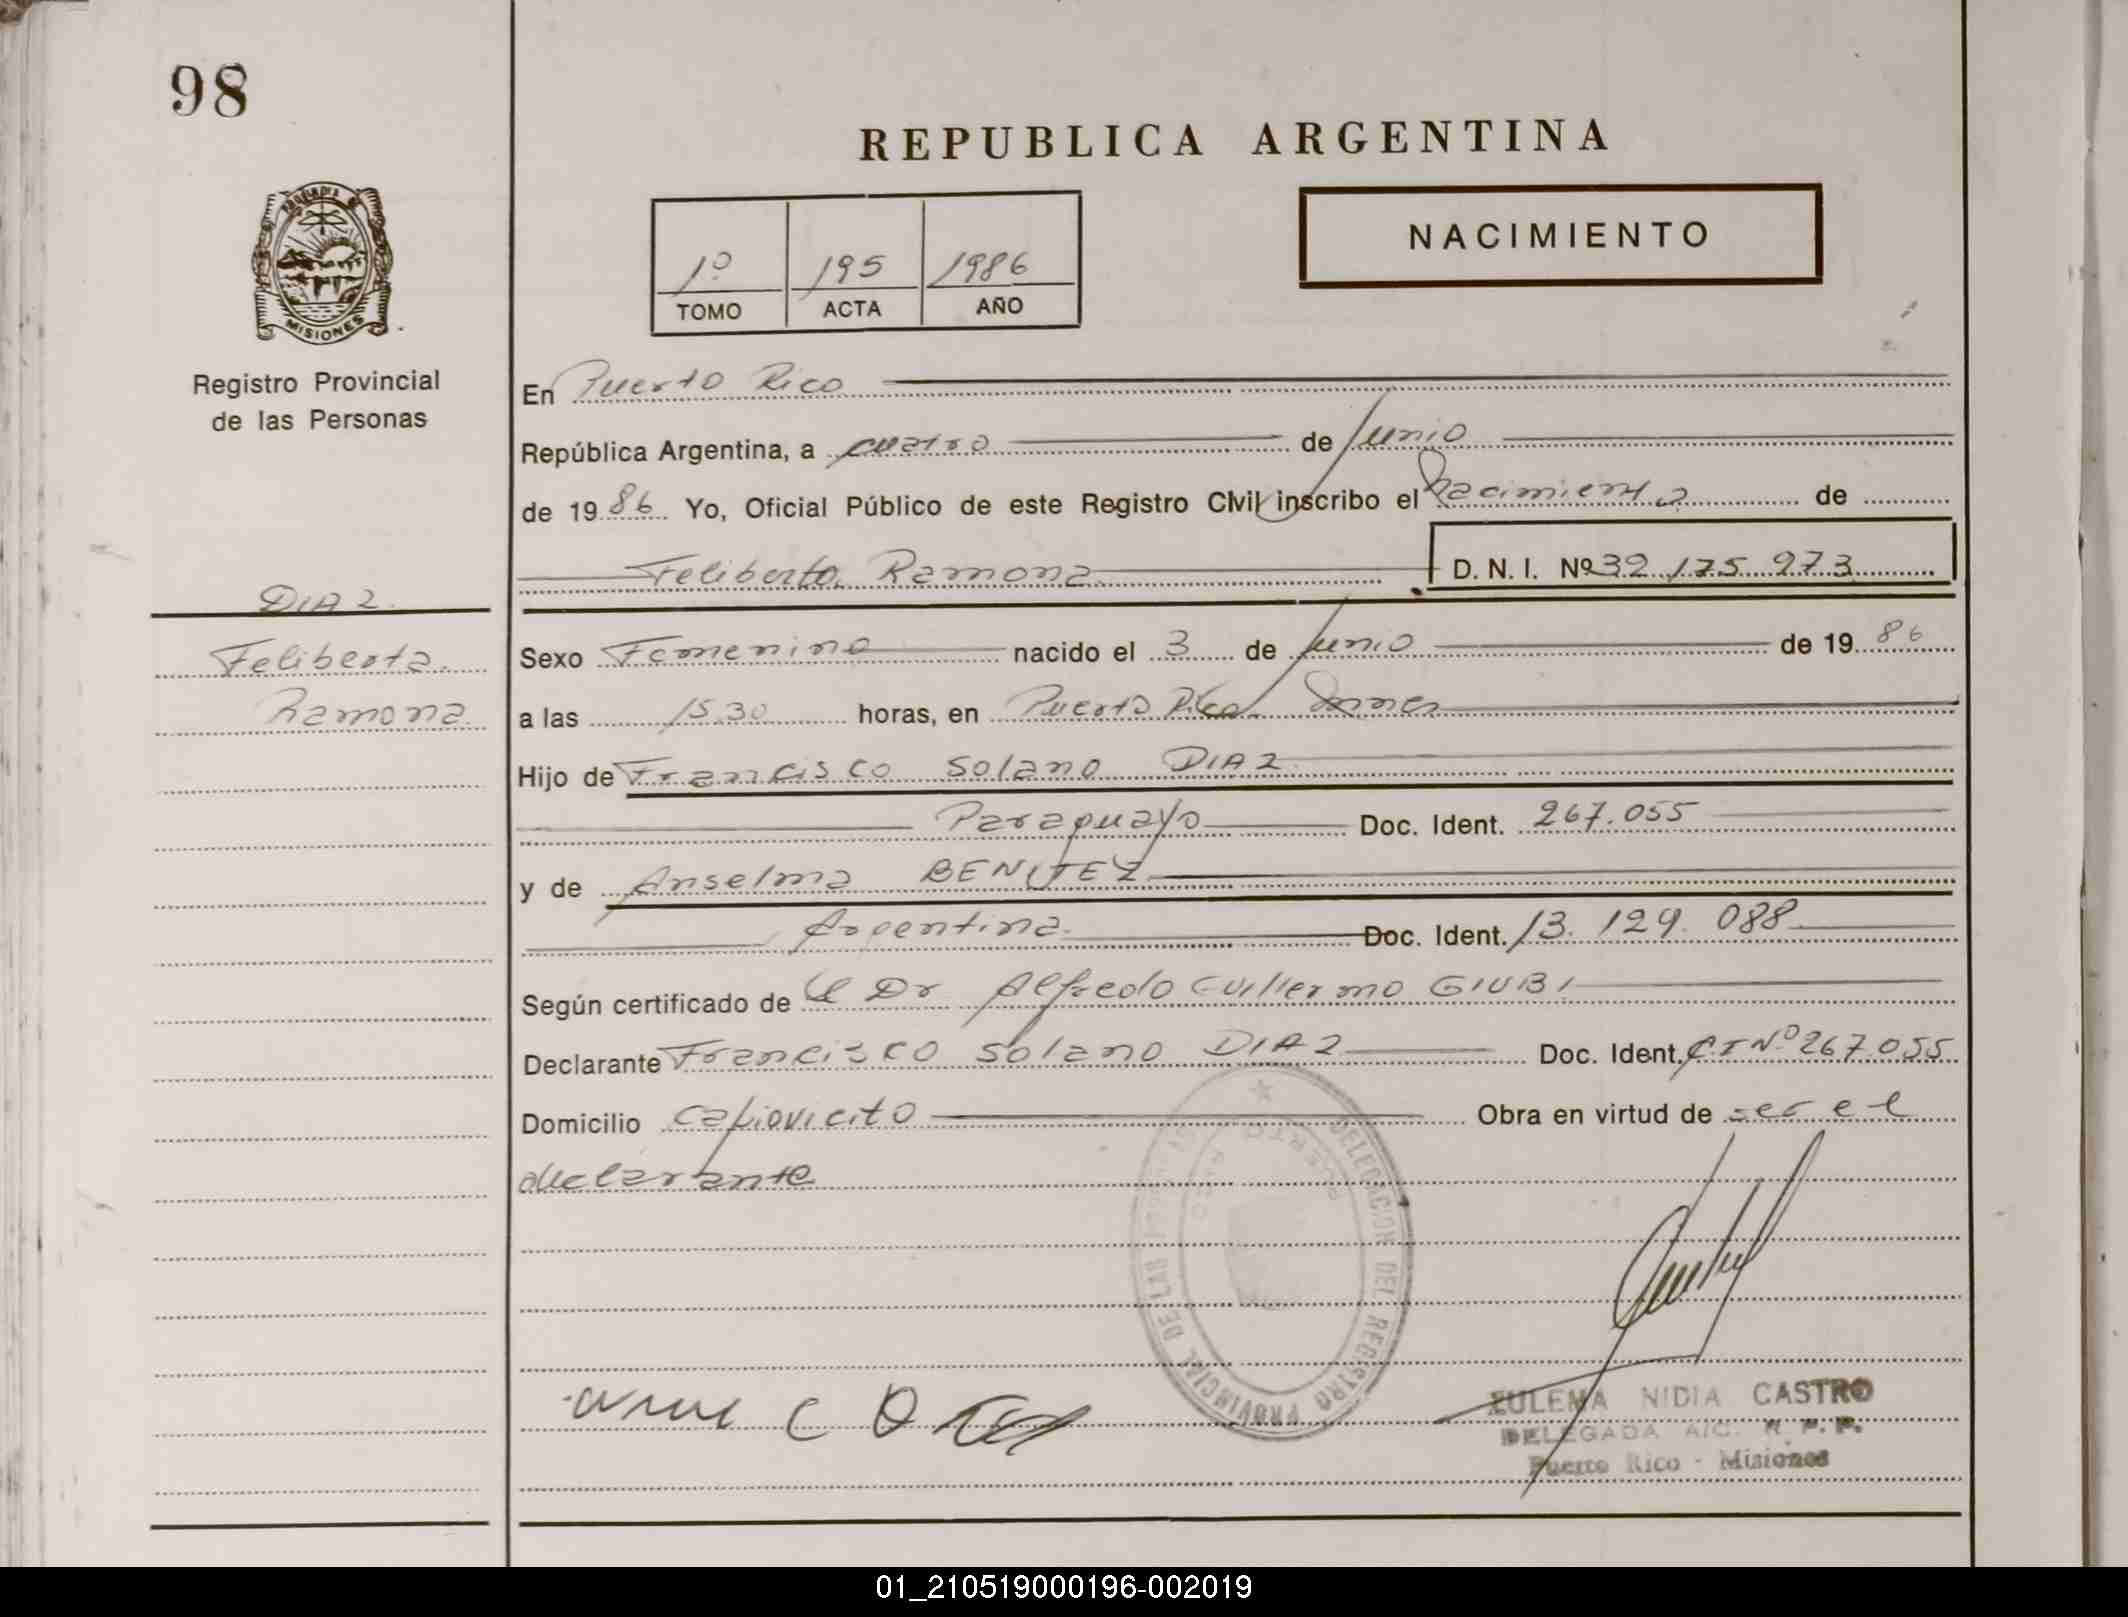 98
REPUBLICA ARGENTINA
NACIMIENTO
1º 195 1986
TOMO ACTA AÑO
MISIONES
Registro Provincial
de las Personas
En Puerto Rico
República Argentina, a cuatro de Junio
de 1986 Yo, Oficial Público de este Registro Civil inscribo el Nacimiento de
Feliberta Ramona D. N. I. Nº 32.175.973
DIAZ
Feliberta
Ramona
Sexo Femenino nacido el 3 de Junio de 1986
a las 15.30 horas, en Puerto Rico
Hijo de Francisco Solano DIAZ
Paraguayo Doc. Ident. 267.055
y de Anselma BENITEZ
Argentina Doc. Ident. 13.129.088
Según certificado de el Dr Alfredo Guillermo GIUBI
Declarante Francisco Solano DIAZ Doc. Ident. C.I Nº 267.055
Domicilio Capiovicito Obra en virtud de ser el
declarante
DELEGACION DEL REGISTRO PROVINCIAL DE LAS
PUERTO RICO
ZULEMA NIDIA CASTRO
DELEGADA A/C. R. P. P.
Puerto Rico - Misiones
01_210519000196-002019